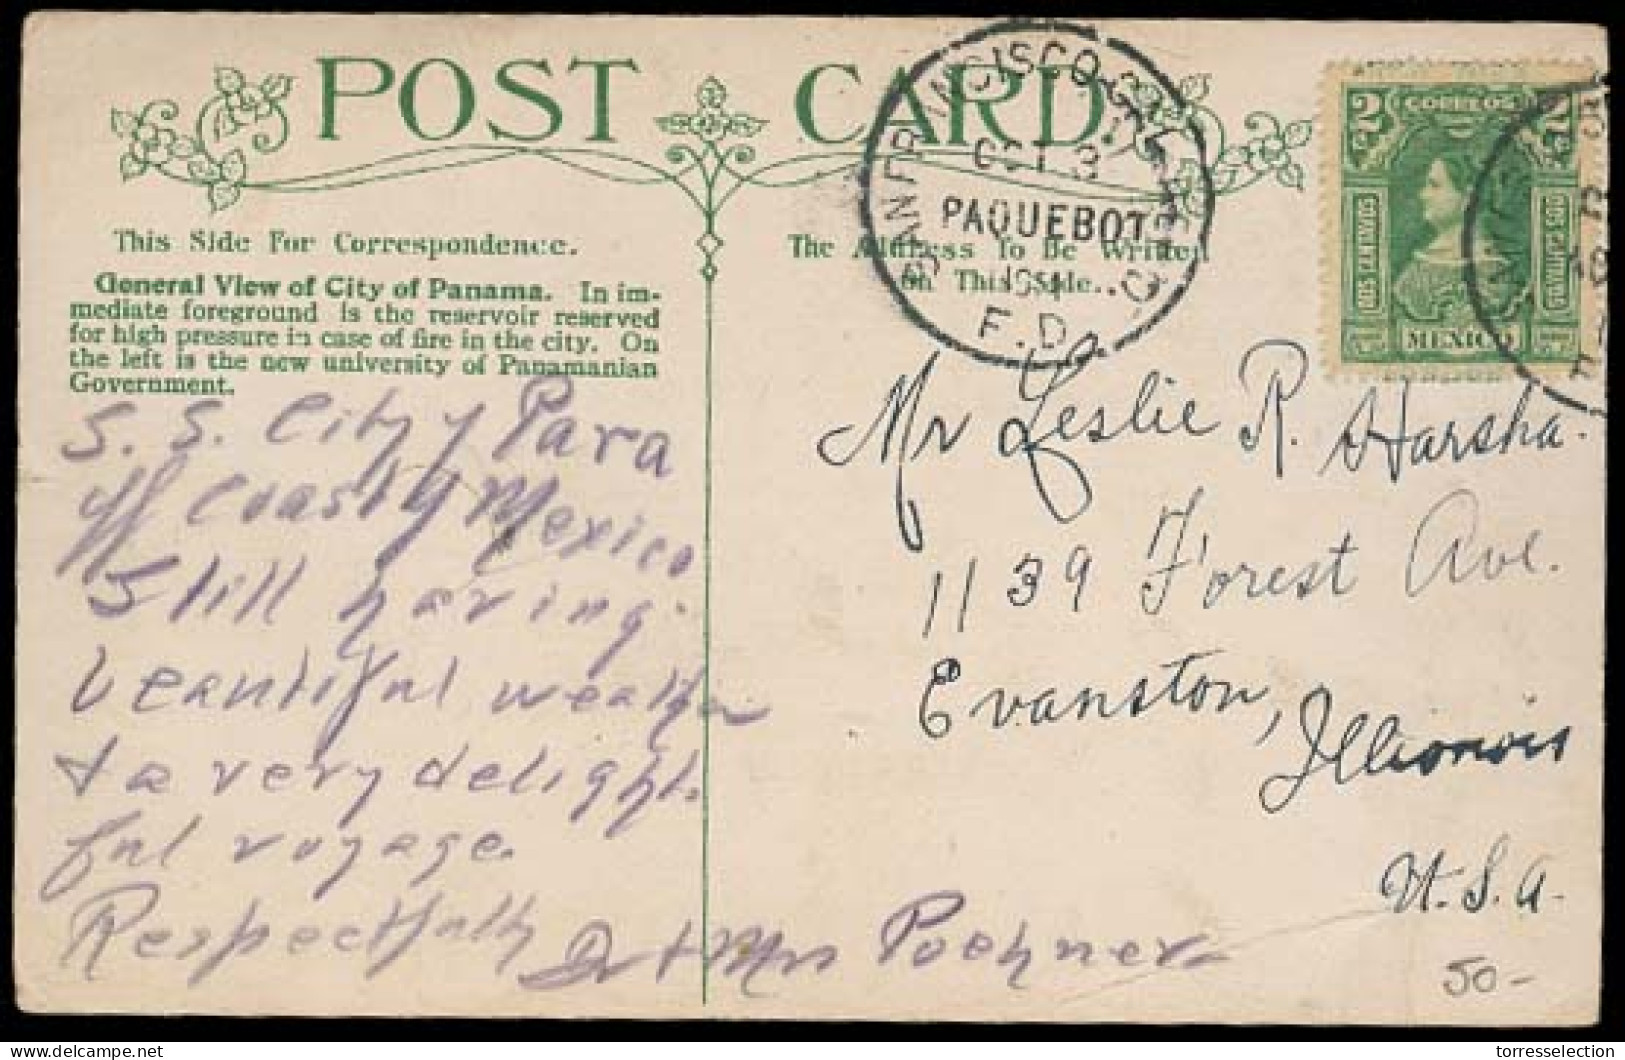 POST CARD
This Side For Correspondence.
The Address To Be Written
on This Side.
General View of City of Panama. In im-
mediate foreground is the reservoir reserved
for high pressure in case of fire in the city. On
the left is the new university of Panamanian
Government.
SAN FRANCISCO
OCT 3
PAQUEBOT
F.D.
2 CORREOS 2
DOS CENTAVOS
DOS CENTAVOS
MEXICO
S. S. City of Para
off coast of Mexico
Still having
beautiful weather
& a very delight-
ful voyage.
Respectfully
Dr & Mrs Poehner
Mr Leslie R. Harsha.
1139 Forest Ave.
Evanston,
Illionois
U.S.A.
50-
delcampe.net
torresselection